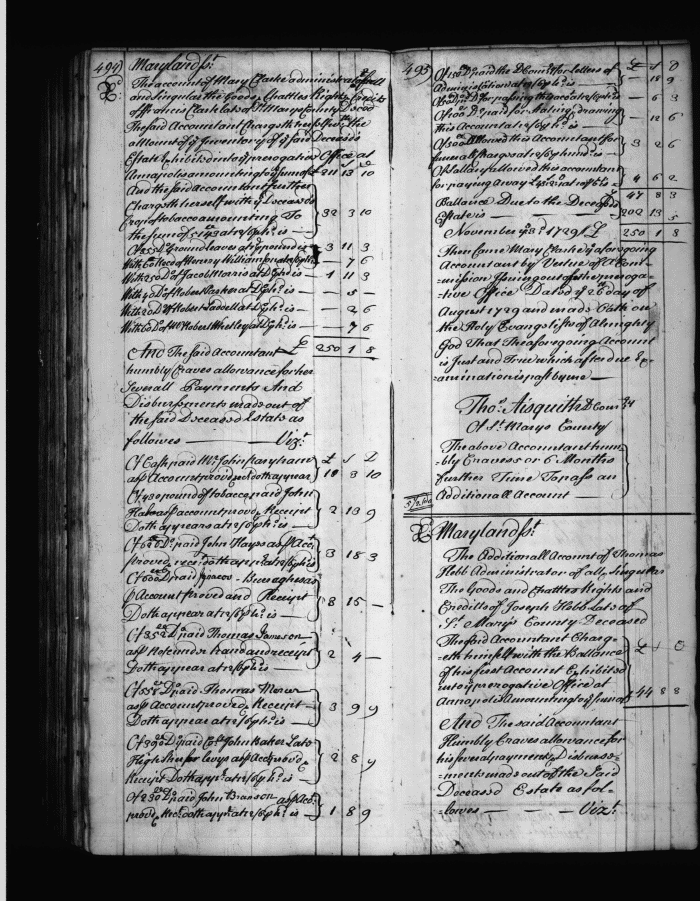 494
Maryland ss.t
The account of Mary Clarke administratrix of all
and Singular the Goods Chattles Rights & Credits
of Francis Clark late of St Marys County Deced
The said Accountant Chargeth herself with the
amount of ye Inventory of ye said Deceaseds
Estate Exhibited into ye prerogative Office at £ s d
Annapolis amounting to ye sum of 211 13 10
And the said accountant further
Chargeth herself with ye Deceaseds
Crop of tobacco amounting To 32 3 10
the sum of at is
Ground leaves at pound is 3 11 3
With of Henry Williams at is — 7 6
With 250 Do of Jacob Morris at Do is — 1 11 3
With 40 Do of Robert at Do is — — 5 —
With 20 Do of Robert at Do is — — 2 6
With 60 Do of Mr Robert Whetley at Do is — — 7 6
And The said Accountant £ 250 1 8
humbly Craves allowance for her
Severall Payments And
Disbursements made out of
the said Deceased Estate as
followes — Vizt
Of Cash paid Mr John
as p Account proved doth appear 10 3 10
Of 430 pound of tobacco paid John
as p account prov'd & Receipt 2 13 9
Doth appear at is —
Of 626 Do paid John Hays as p Acct
proved & rect doth appear at is 3 18 3
Of Do paid
p Account proved and Receipt 8 15 —
Doth appear at is —
Of 352 Do paid Thomas Jameson
as p Note under hand and receipt 2 4 —
Doth appear at is —
Of 558 Do paid Thomas
as p Account proved & Receipt 3 9 9
Doth appear at is —
Of 390 Do paid Coll John Baker Late
High Sheriff for levys as p Acct proved & 2 8 9
Receipt Doth appr at is —
Of 230 Do paid John Branson as p Acct
proved & rect doth appr at is — 1 8 9
495 £ S D
Of 150 Do paid the D Comry for letters of
Administration at is — — 18 9
Of 50 Do Do for passing this acct at is — — 6 3
Of 100 Do paid for stating & drawing
this Account at is — — 12 6
Of 500 allowed this Accountant for
funerall Charges at p hund is — 3 2 6
Of Sallary allowed this accountant
for paying away at is — 4 6 2
47 8 3
Ballance Due to the Deceaseds
Estate is — 202 13 5
November ye 3d 1729 £ 250 1 8
Then Came Mary Clarke ye aforegoing
Accountant by Vertue of A Com-
mission Issuing out of the preroga-
tive Office Dated ye day of
August 1729 and made Oath on
the Holy Evangelists of Almighty
God That The aforegoing Account
is Just and True which after due Ex-
amination is past by me —
Tho.s Aisquith D Comry
Of St Marys County
The above Accountant hum-
bly Craves or 6 Months
further Time To pass an
Additionall Account —
Maryland ss.t
The Additionall Account of Thomas
Hebb Administrator of all & Singular
The Goods and Chattles Rights and
Credits of Joseph Hebb Late of
St Marys County Deceased
The said Accountant Charg-
eth himself with the Ballance
of his first Account Exhibited
into ye prerogative Office at
Annapolis Amounting to ye sum of 44 8 8
And The said Accountant
Humbly Craves allowance for
his severall payments & Disburse-
ments made out of the Said
Deceased Estate as fol-
lowes — Vizt